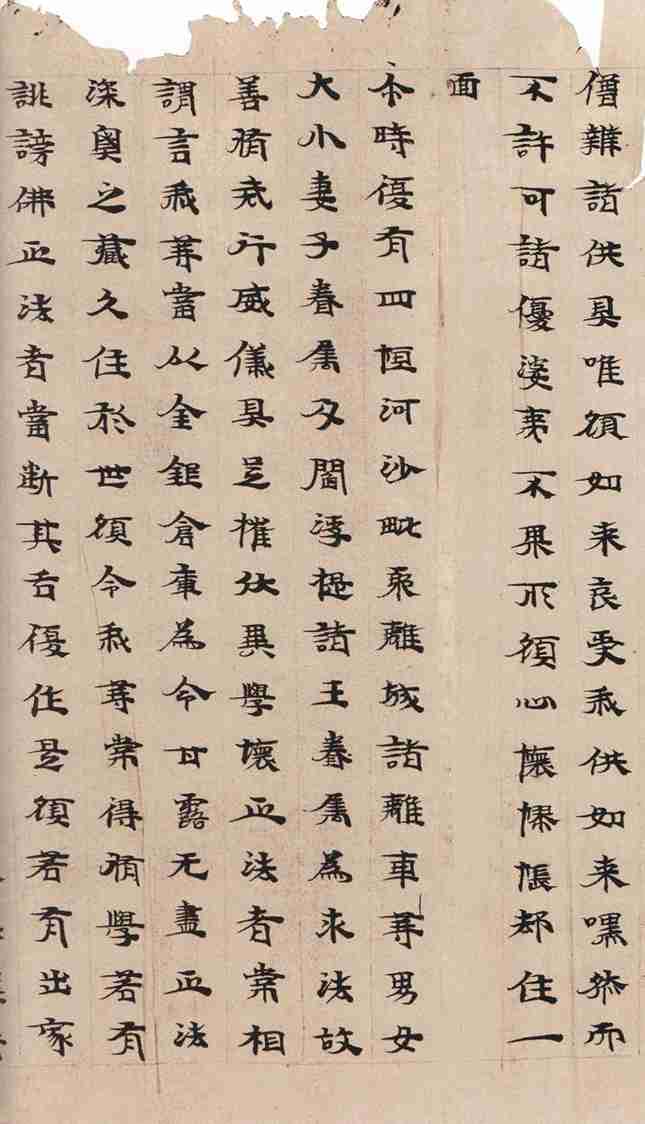 僧辦諸供具唯願如来哀受我供如来嘿然而
不許可諸優婆夷不果所願心懷惆悵却住一
面
尒時復有四恒河沙毗耶離城諸離車等男女
大小妻子眷屬及閻浮提諸王眷屬為求法故
善脩戒行威儀具足摧伏異學壞正法者常相
謂言我等當以金銀倉庫為令甘露无盡正法
深奧之藏久住於世願令我等常得脩學若有
誹謗佛正法者當斷其舌復作是願若有出家